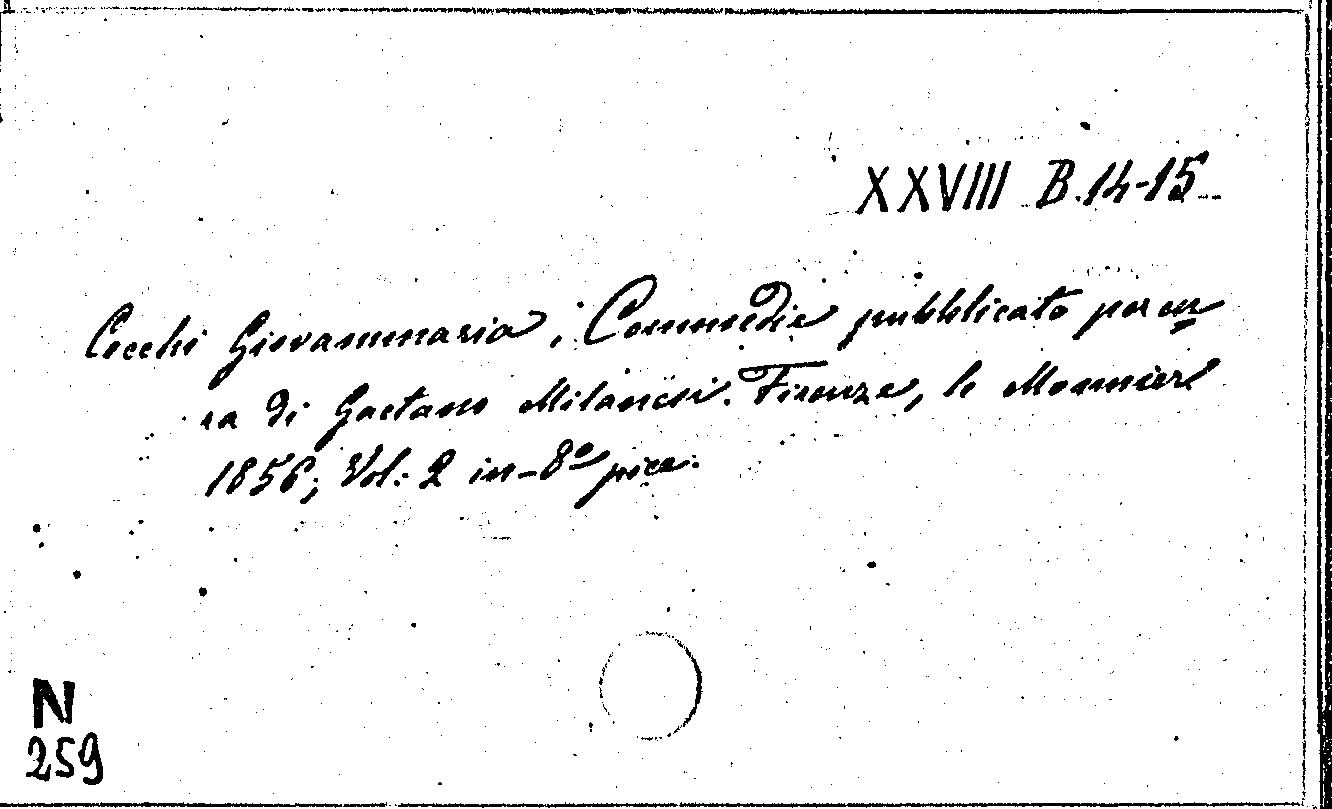 XXVIII B.14-15
Cecchi Giovammaria, Commedie pubblicate per cu
ra di Gaetano Milanesi. Firenze, le Monnier
1856, Vol: 2 in-8º picc.
N
259